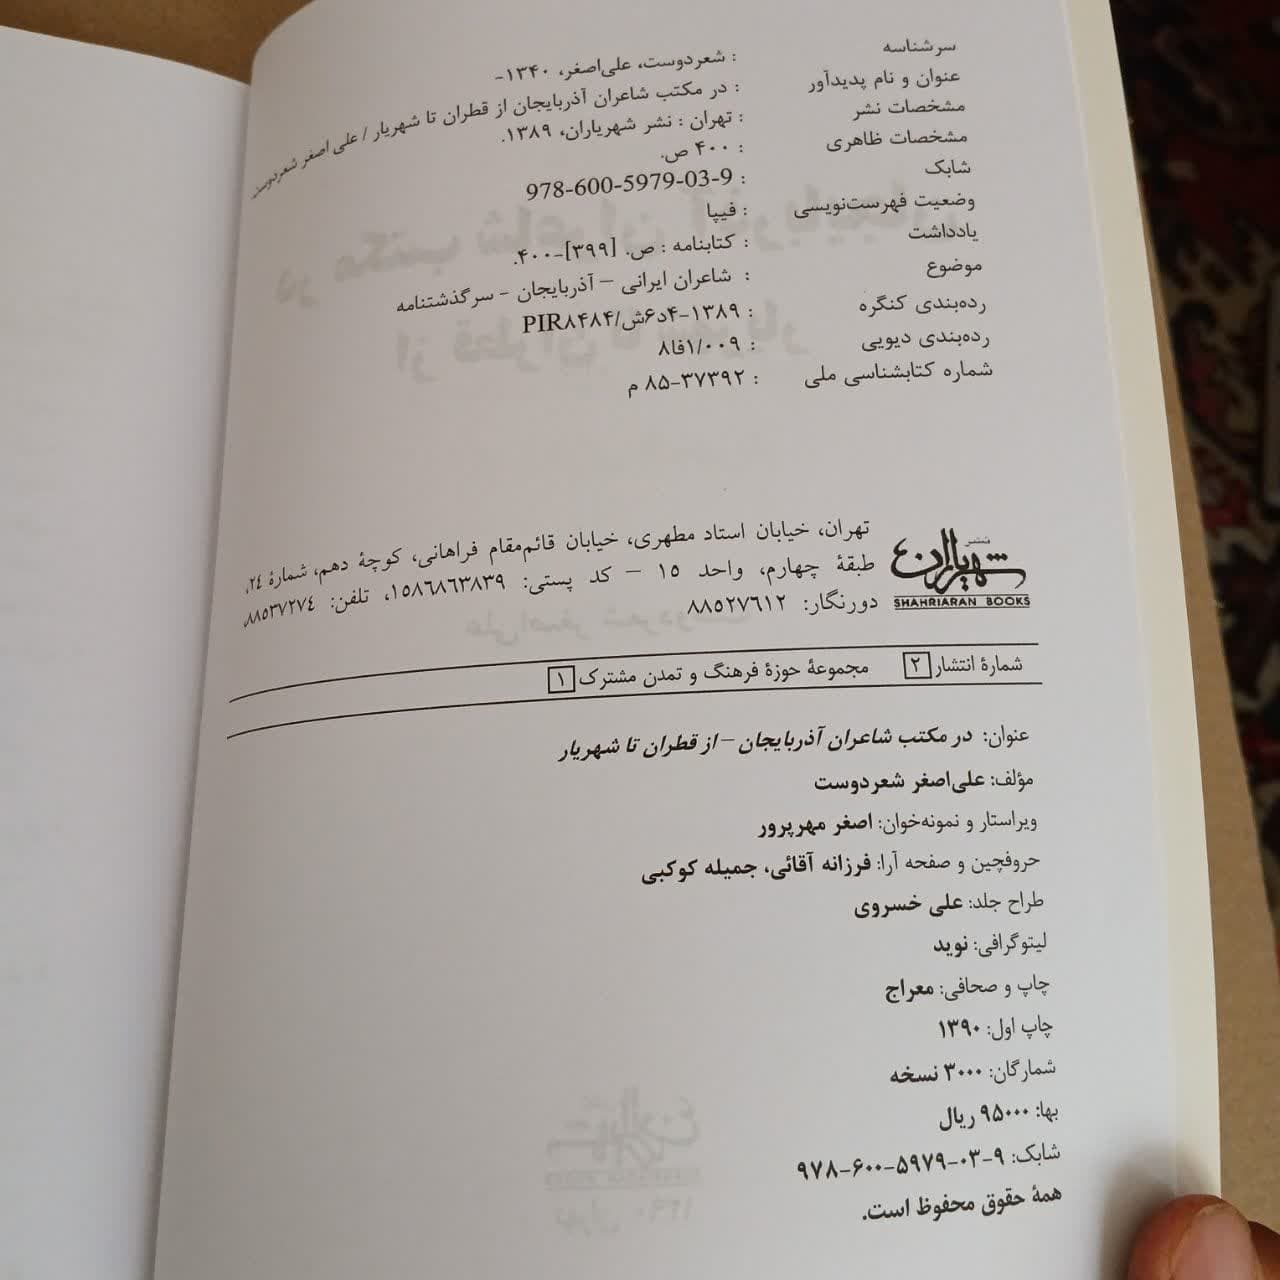 سرشناسه : شعردوست، علی‌اصغر، ۱۳۴۰-
عنوان و نام پدیدآور : در مکتب شاعران آذربایجان از قطران تا شهریار / علی اصغر شعردوست.
مشخصات نشر : تهران : نشر شهریاران، ۱۳۸۹.
مشخصات ظاهری : ۴۰۰ ص.
شابک : 978-600-5979-03-9
وضعیت فهرست‌نویسی : فیپا
یادداشت : کتابنامه : ص. [۳۹۹]-۴۰۰.
موضوع : شاعران ایرانی – آذربایجان - سرگذشتنامه
رده‌بندی کنگره : ۱۳۸۹-۴د۶ش/PIR۸۴۸۴
رده‌بندی دیویی : ۱/۰۰۹فا۸
شماره کتابشناسی ملی : ۸۵-۳۷۳۹۲ م
نشر
شهریاران
SHAHRIARAN BOOKS
تهران، خیابان استاد مطهری، خیابان قائم‌مقام فراهانی، کوچۀ دهم، شمارۀ ۲٤،
طبقۀ چهارم، واحد ۱۵ – کد پستی: ۱۵۸٦۸٦۳۸۳۹، تلفن: ۸۸۵۳۷۲۷٤،
دورنگار: ۸۸۵۲۷٦۱۲
شمارۀ انتشار ۲ مجموعۀ حوزۀ فرهنگ و تمدن مشترک ۱
عنوان: در مکتب شاعران آذربایجان – از قطران تا شهریار
مؤلف: علی‌اصغر شعردوست
ویراستار و نمونه‌خوان: اصغر مهرپرور
حروفچین و صفحه آرا: فرزانه آقائی، جمیله کوکبی
طراح جلد: علی خسروی
لیتوگرافی: نوید
چاپ و صحافی: معراج
چاپ اول: ۱۳۹۰
شمارگان: ۳۰۰۰ نسخه
بها: ۹۵۰۰۰ ریال
شابک: ۹-۰۳-۵۹۷۹-۶۰۰-۹۷۸
همۀ حقوق محفوظ است.